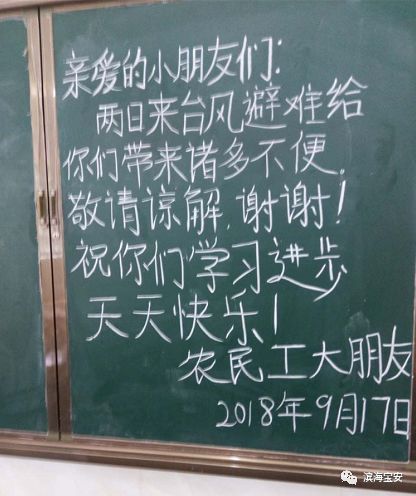 亲爱的小朋友们:
两日来台风避难给
你们带来诸多不便.
敬请谅解,谢谢!
祝你们学习进步
天天快乐!
农民工大朋友
2018年9月17日
滨海宝安